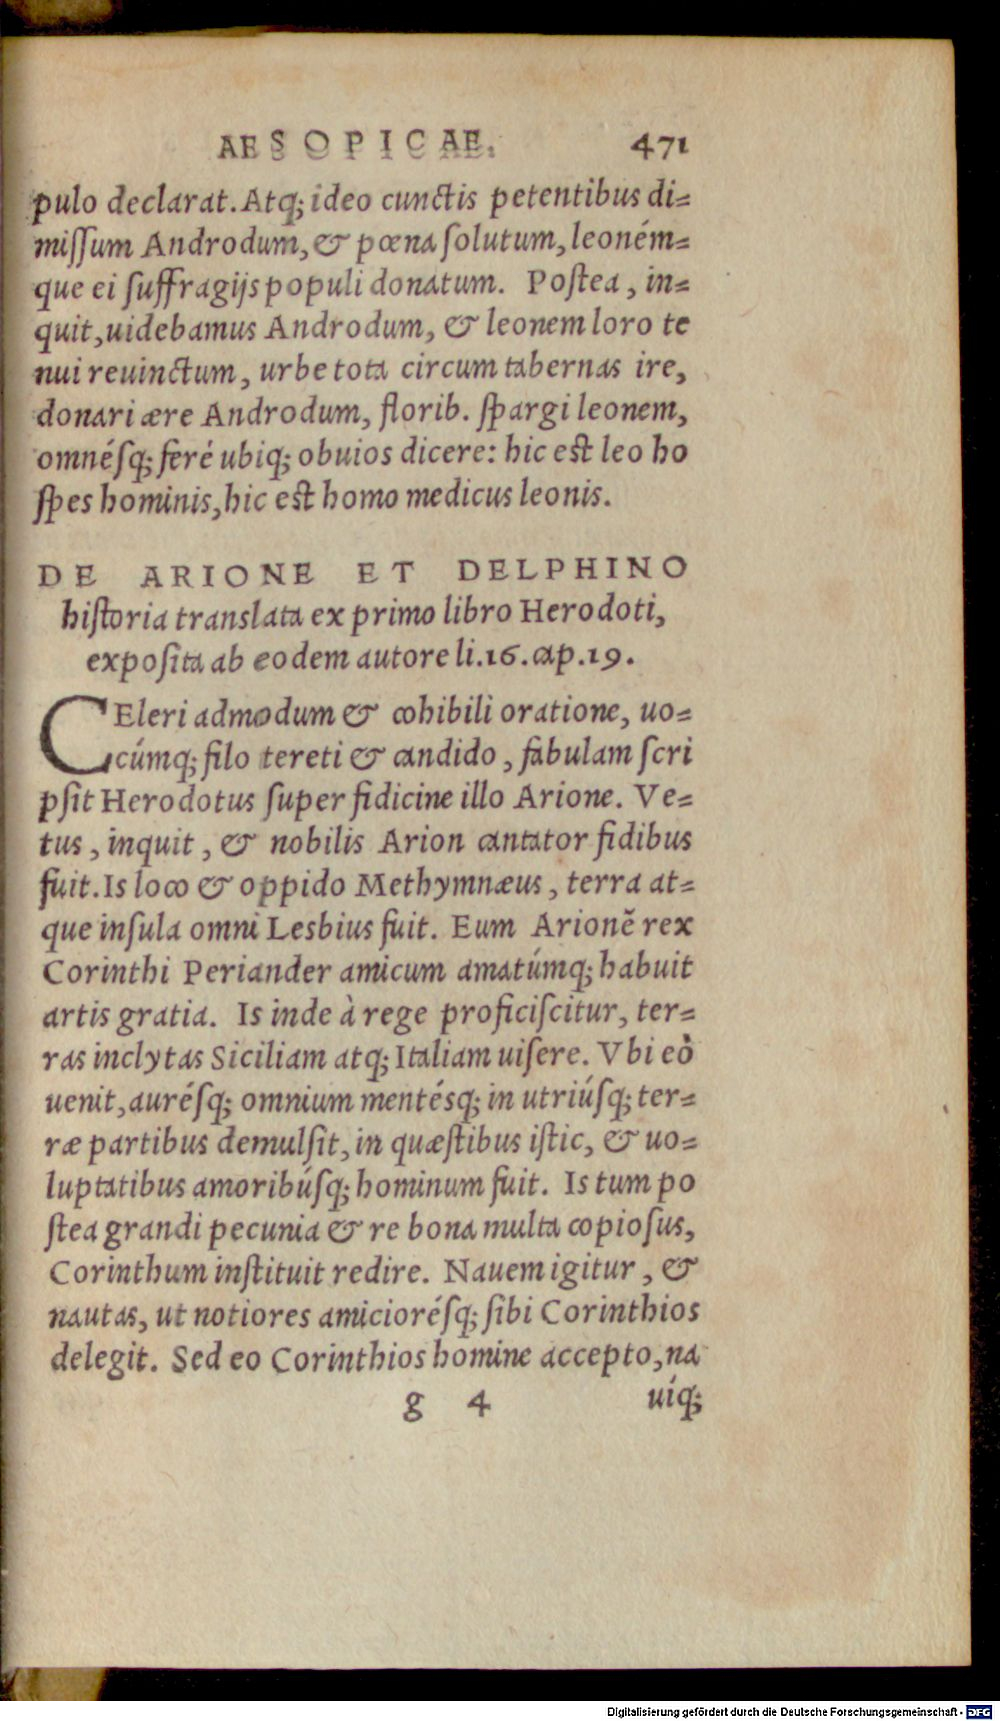 AESOPICAE. 471
pulo declarat. Atq; ideo cunctis petentibus di=
missum Androdum, & pœna solutum, leoném=
que ei suffragijs populi donatum. Postea, in=
quit, uidebamus Androdum, & leonem loro te
nui reuinctum, urbe tota circum tabernas ire,
donari ære Androdum, florib. spargi leonem,
omnésq; feré ubiq; obuios dicere: hic est leo ho
spes hominis, hic est homo medicus leonis.
DE ARIONE ET DELPHINO
historia translata ex primo libro Herodoti,
exposita ab eodem autore li.16. cap.19.
CEleri admodum & cohibili oratione, uo=
cúmq; filo tereti & candido, fabulam scri
psit Herodotus super fidicine illo Arione. Ve=
tus, inquit, & nobilis Arion cantator fidibus
fuit. Is loco & oppido Methymnæus, terra at=
que insula omni Lesbius fuit. Eum Arionẽ rex
Corinthi Periander amicum amatúmq; habuit
artis gratia. Is inde à rege proficiscitur, ter=
ras inclytas Siciliam atq; Italiam uisere. Vbi eò
uenit, aurésq; omnium mentésq; in utriúsq; ter=
ræ partibus demulsit, in quæstibus istic, & uo=
luptatibus amoribúsq; hominum fuit. Is tum po
stea grandi pecunia & re bona multa copiosus,
Corinthum instituit redire. Nauem igitur, &
nautas, ut notiores amiciorésq; sibi Corinthios
delegit. Sed eo Corinthios homine accepto, na
g 4 uíq;
Digitalisierung gefördert durch die Deutsche Forschungsgemeinschaft - DFG